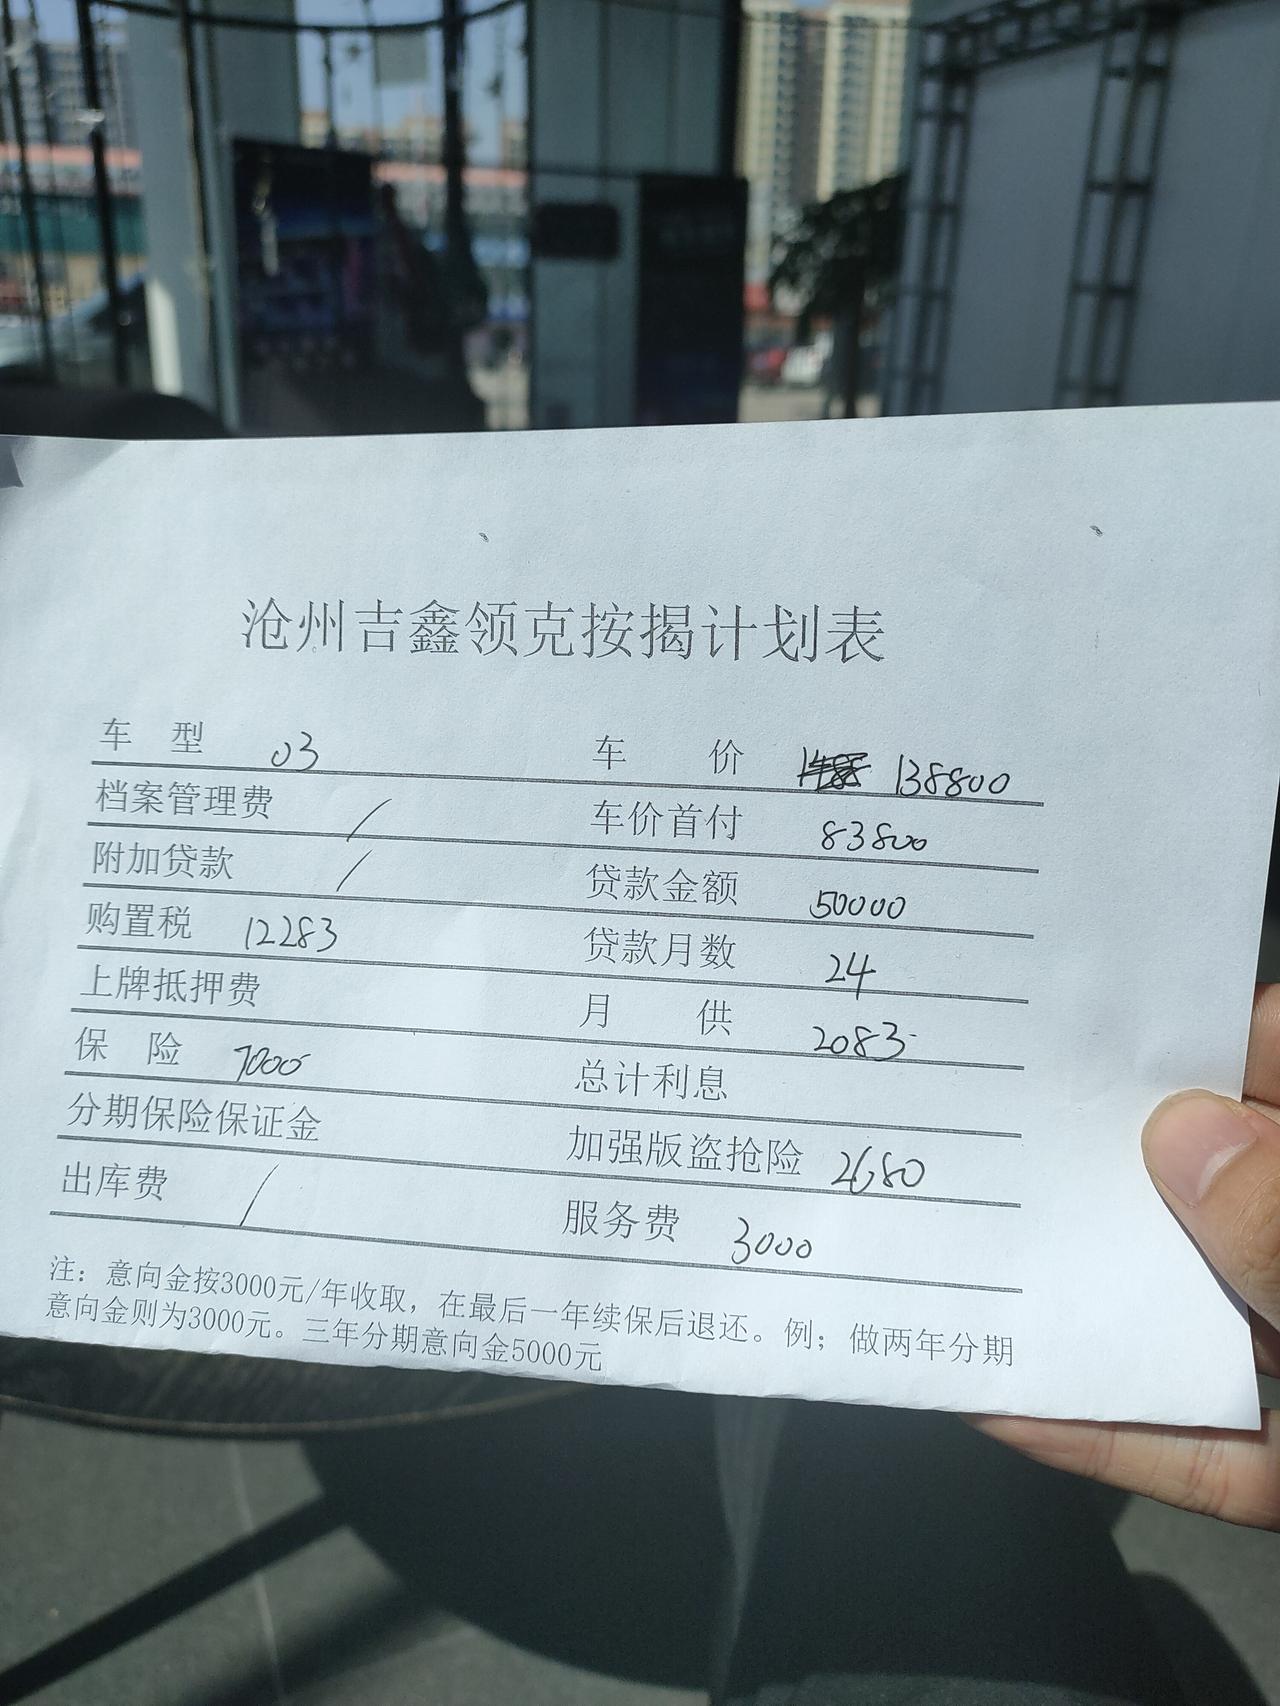 沧州吉鑫领克按揭计划表
车 型 03 车 价 138800
档案管理费 / 车价首付 83800
附加贷款 / 贷款金额 50000
购置税 12283 贷款月数 24
上牌抵押费 月 供 2083
保 险 7000 总计利息
分期保险保证金 加强版盗抢险 2680
出库费 / 服务费 3000
注：意向金按3000元/年收取，在最后一年续保后退还。例；做两年分期
意向金则为3000元。三年分期意向金5000元